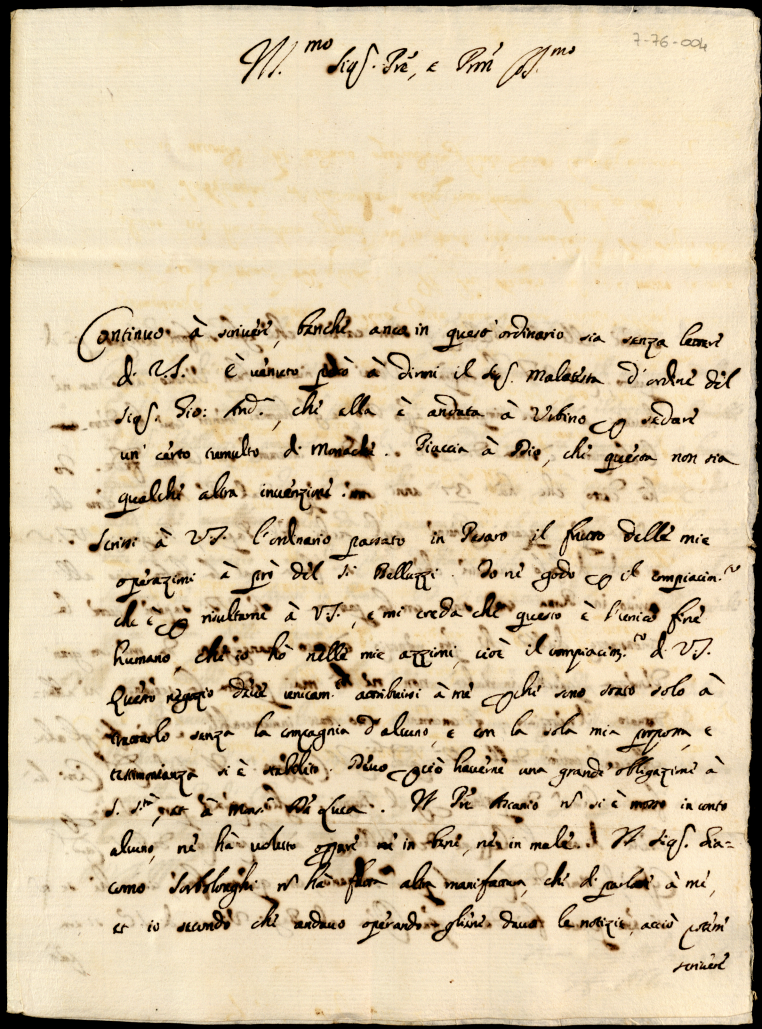 7-76-004
Ill.mo Sig.r Prē, e Prōn
Continuo à scrivere, benche anco in quest'ordinario sia senza lettere
di V.S. È venuto però à dirmi il Sig.r Malatesta d'ordine del
Sig.r Gio: And.a, che ella è andata à Urbino sedare
un' certo tumulto di Monache. Piaccia à Dio, che questa non sia
qualche altra invenzione
Scrissi à V.S. l'ordinario passato in Pesaro il frutto delle mie
operazioni à prò del S.r Belluzzi. Io ne godo il compiacim.to
che è risultarne à V.S., e mi creda che questo è l'unico fine
humano, che io hò nelle mie azzioni, cioè il compiacim.to di V.S.
Questo negozio deve unicam.te attribuirsi à me che sono stato solo à
trattarlo senza la compagnia d'alcuno, e con la sola mia proposta, e
testimonianza si è stabilito. Devo ciò haverne una grande obligazione à
S. S.tà, et à Mons.r De Luca. Il Prē Ascanio nō si è mosso in conto
alcuno, ne hà voluto oprare ne in bene, ne in male. Il Sig.r Gia=
como Sorbolonghi nō hà fatta altra manifattura, che di parlare à me,
et io secondo che andavo operando gliene davo le notizie, acciò potesse
scrivere